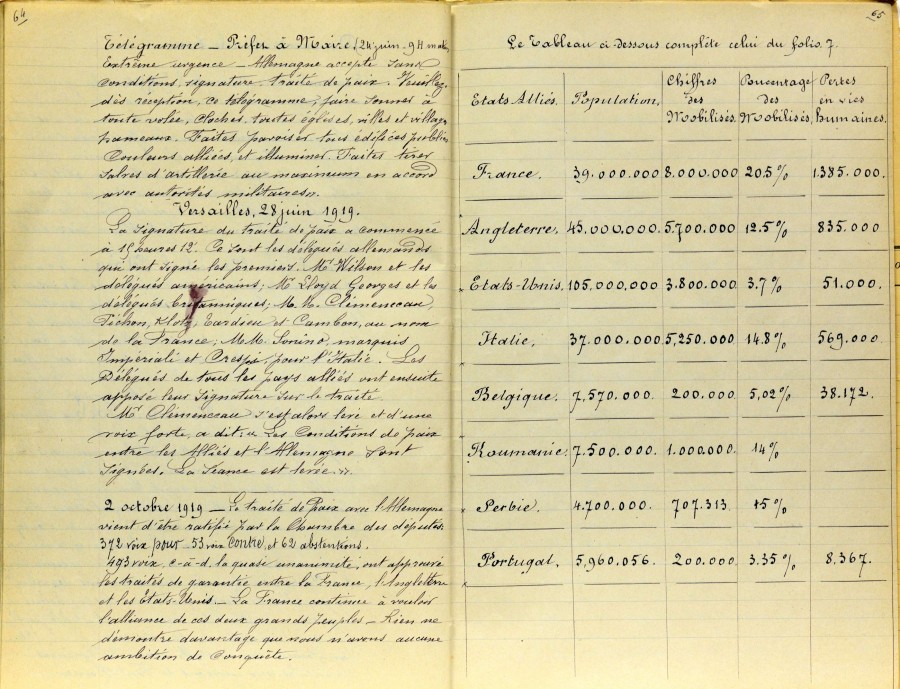 64
Télégramme — Préfet à Maire (24 juin - 9 H mat.
Extrême urgence — Allemagne accepte sans
conditions, signature traité de paix. Veuillez,
dès réception, ce télégramme, faire sonner à
toute volée, cloches, toutes églises, villes et villages
hameaux. Faites pavoiser tous édifices publics
couleurs alliées, et illuminer. Faites tirer
salves d'artillerie au maximum en accord
avec autorités militaires.
Versailles, 28 juin 1919.
La signature du traité de paix a commencé
à 15 heures 12. Ce sont les délégués allemands
qui ont signé les premiers. Mr Wilson et les
délégués américains; Mr Lloyd Georges et les
délégués britanniques; M.M. Clémenceau,
Pichon, Klotz, Tardieu et Cambon, au nom
de la France; M.M. Sonino, marquis
Impériali et Crespi pour l'Italie. Les
Délégués de tous les pays alliés ont ensuite
apposé leur signature sur le traité.
Mr Clémenceau s'est alors levé et d'une
voix forte, a dit: « Les Conditions de paix
entre les Alliés et l'Allemagne sont
signées. La séance est levée. »
2 octobre 1919 — Le traité de Paix avec l'Allemagne
vient d'être ratifié par la Chambre des députés.
372 voix pour - 53 voix contre, et 62 abstentions.
493 voix, c-à-d. la quasi unanimité, ont approuvé
les traités de garantie entre la France, l'Angleterre
et les Etats-Unis. — La France continue à vouloir
l'alliance de ces deux grands peuples — Rien ne
démontre davantage que nous n'avons aucune
ambition de Conquête.
65
Le Tableau ci dessous complète celui du folio 7.
Etats Alliés. Population. Chiffres des Mobilisés. Pourcentage des Mobilisés. Pertes en vies humaines.
France. 39.000.000 8.000.000 20.5% 1.385.000.
Angleterre. 45.000.000. 5.700.000 12.5% 835.000
Etats-Unis. 105.000.000 3.800.000 3.7% 51.000.
Italie. 37.000.000 5.250.000 14.8% 569.000
Belgique. 7.570.000. 200.000. 5,02% 38.172.
Roumanie. 7.500.000. 1.000.000. 14%
Serbie. 4.700.000. 707.313 15%
Portugal. 5,960,056. 200.000 3.35% 8,367.